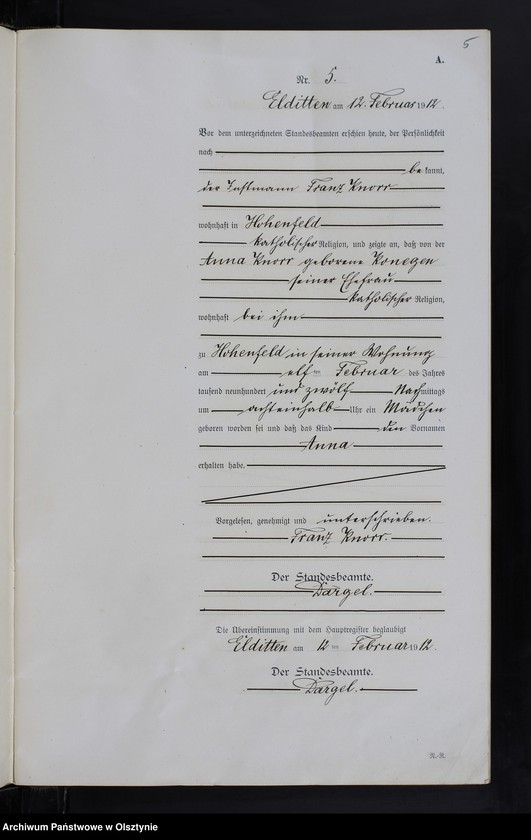 5
A.
Nr. 5.
Elditten am 12. Februar 1912
Vor dem unterzeichneten Standesbeamten erschien heute, der Persönlichkeit
nach
bekannt,
der Instmann Franz Knorr
wohnhaft in Hohenfeld
katholischer Religion, und zeigte an, daß von der
Anna Knorr geborene Konegen
seiner Ehefrau
katholischer Religion,
wohnhaft bei ihm
zu Hohenfeld in seiner Wohnung
am elften Februar des Jahres
tausend neunhundert und zwölf Nachmittags
um achteinhalb Uhr ein Mädchen
geboren worden sei und daß das Kind den Vornamen
Anna
erhalten habe.
Vorgelesen, genehmigt und unterschrieben.
Franz Knorr.
Der Standesbeamte.
Dargel.
Die Übereinstimmung mit dem Hauptregister beglaubigt
Elditten am 12ten Februar 1912.
Der Standesbeamte.
Dargel.
Archiwum Państwowe w Olsztynie